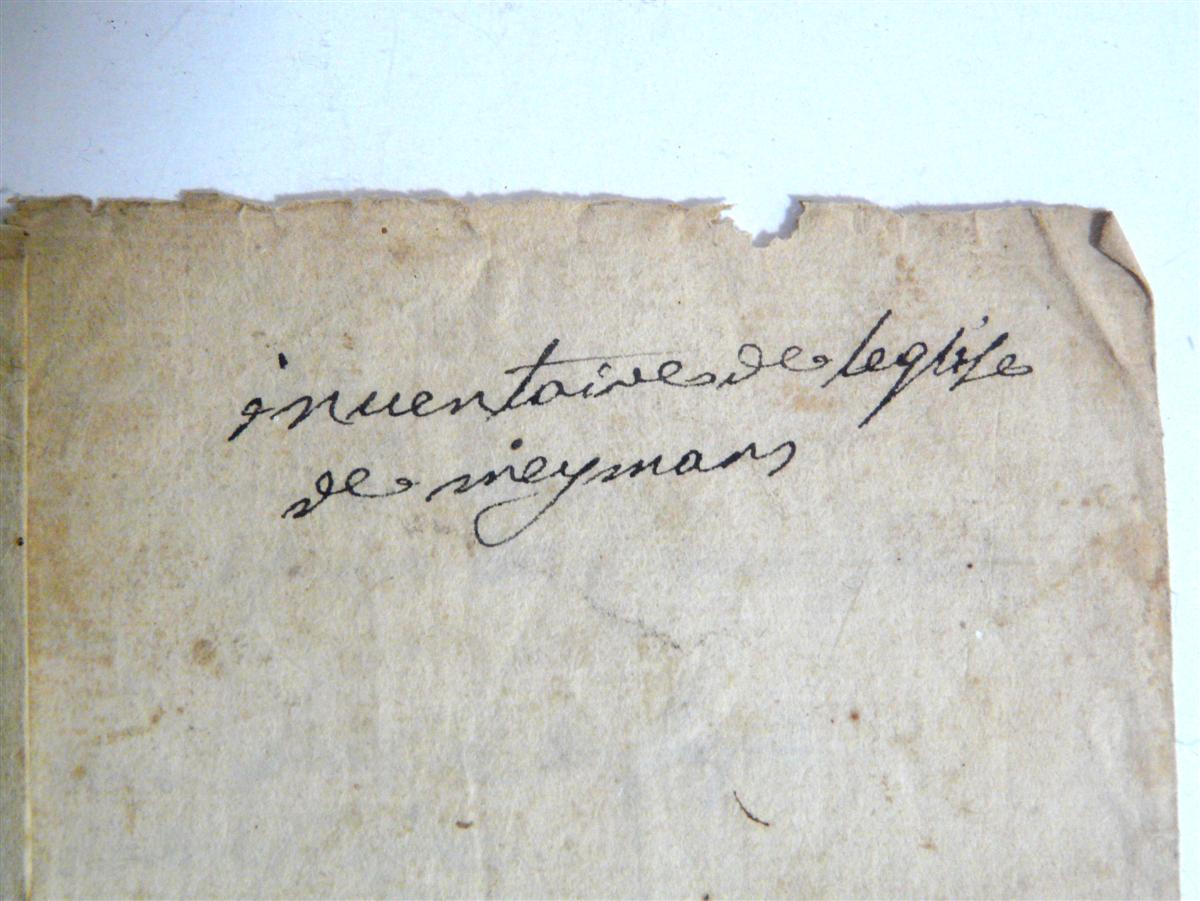 inuentaire de leglise
de meymans